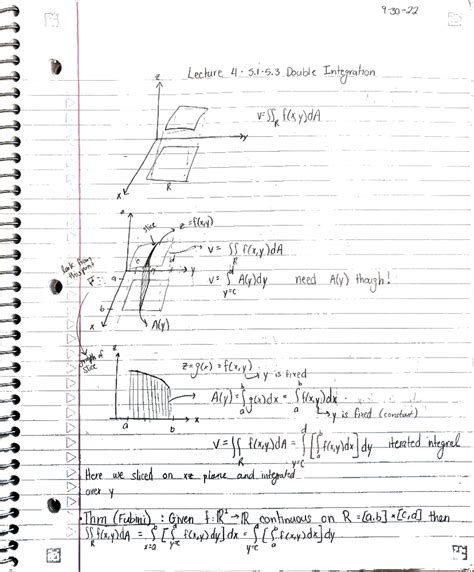 9-30-22
Lecture 4 - 5.1-5.3 Double Integration
z
V=∬_R f(x,y)dA
y
R
x
z
slice
z=f(x,y)
c
d
V = ∬_R f(x,y)dA
look from
this point
a
y
V = ∫_{y=c}^{d} A(y)dy need A(y) though!
b
x
A(y)
graph of
slice
z
z=g(x) = f(x,y)
y is fixed
A(y) = ∫_a^b g(x)dx = ∫_a^b f(x,y)dx
x
y is fixed (constant)
a b
V = ∬_R f(x,y)dA = ∫_c^d [∫_a^b f(x,y)dx] dy iterated integral
Here we sliced on xz plane and integrated
over y
• Thm (Fubini) : Given f:ℝ²→ℝ continuous on R = [a,b]×[c,d] then
∬_R f(x,y)dA = ∫_{x=a}^b [∫_{y=c}^d f(x,y)dy] dx = ∫_{y=c}^d [∫_a^b f(x,y)dx] dy